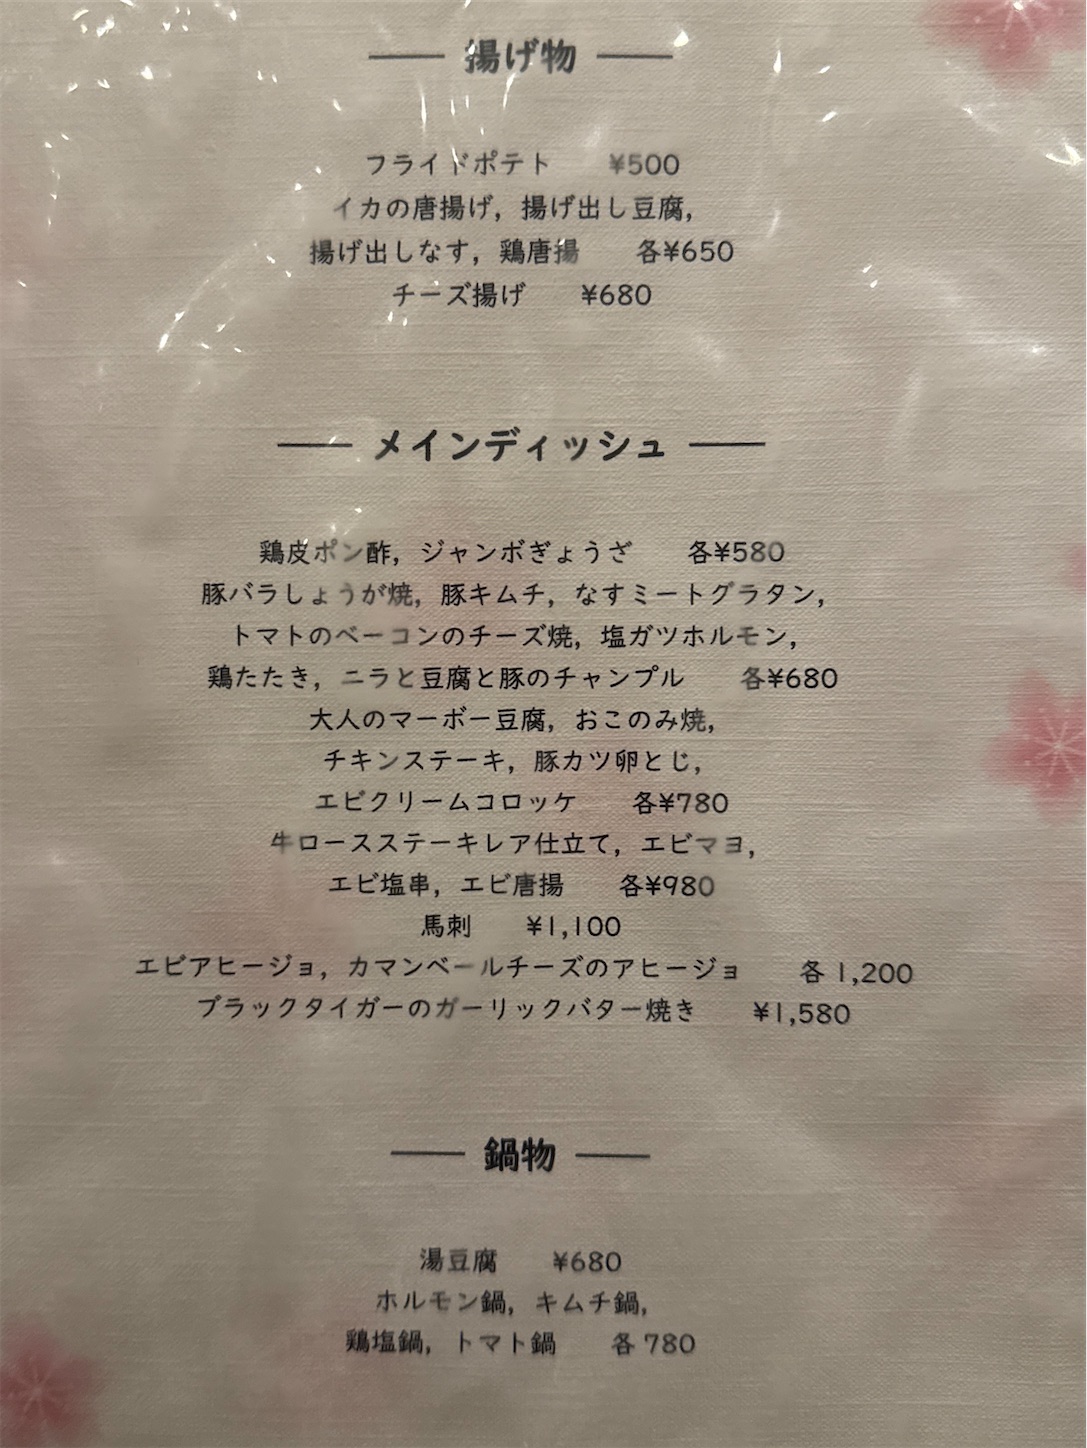 揚げ物
フライドポテト ¥500
イカの唐揚げ, 揚げ出し豆腐,
揚げ出しなす, 鶏唐揚 各¥650
チーズ揚げ ¥680
メインディッシュ
鶏皮ポン酢, ジャンボぎょうざ 各¥580
豚バラしょうが焼, 豚キムチ, なすミートグラタン,
トマトのベーコンのチーズ焼, 塩ガツホルモン,
鶏たたき, ニラと豆腐と豚のチャンプル 各¥680
大人のマーボー豆腐, おこのみ焼,
チキンステーキ, 豚カツ卵とじ,
エビクリームコロッケ 各¥780
牛ロースステーキレア仕立て, エビマヨ,
エビ塩串, エビ唐揚 各¥980
馬刺 ¥1,100
エビアヒージョ, カマンベールチーズのアヒージョ 各 1,200
ブラックタイガーのガーリックバター焼き ¥1,580
鍋物
湯豆腐 ¥680
ホルモン鍋, キムチ鍋,
鶏塩鍋, トマト鍋 各 780